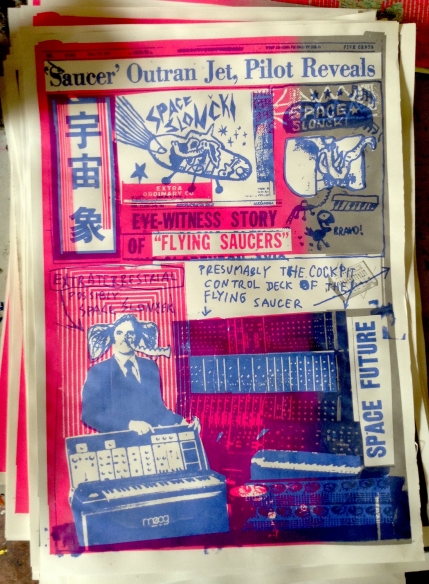 FIVE CENTS
'Saucer' Outran Jet, Pilot Reveals
宇宙象
SPACE
SLONCKI
SPACE
SLONCKI
EXTRA
ORDINARY.CO
BRRAVO!
EYE-WITNESS STORY
OF "FLYING SAUCERS"
EXTRATERRESTRIAL
POSSIBLY
PRESUMABLY THE COCKPIT
CONTROL DECK OF THE
FLYING SAUCER
SPACE FUTURE
moog